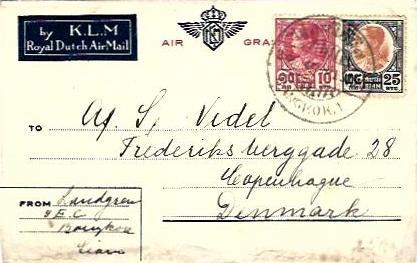 by K.L.M
Royal Dutch Air Mail
AIR GRA
KLM
๑๐ 10
25
SIAM
BANGKOK.1
TO
A/S, Videl
Frederiksberggade 28
Copenhague
Denmark
FROM Lundgren
Bangkok
Siam